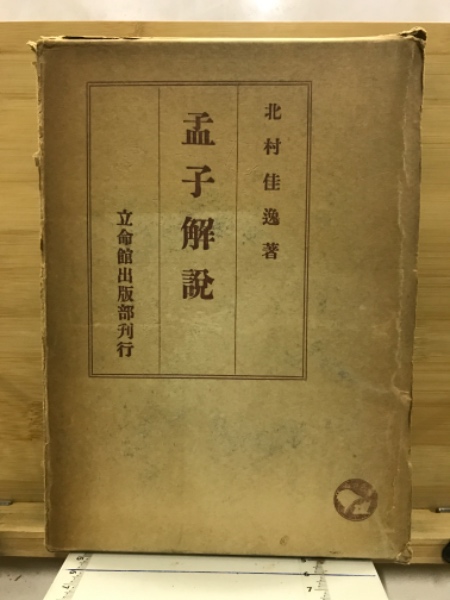 北村佳逸著
孟子解說
立命館出版部刊行
6
7